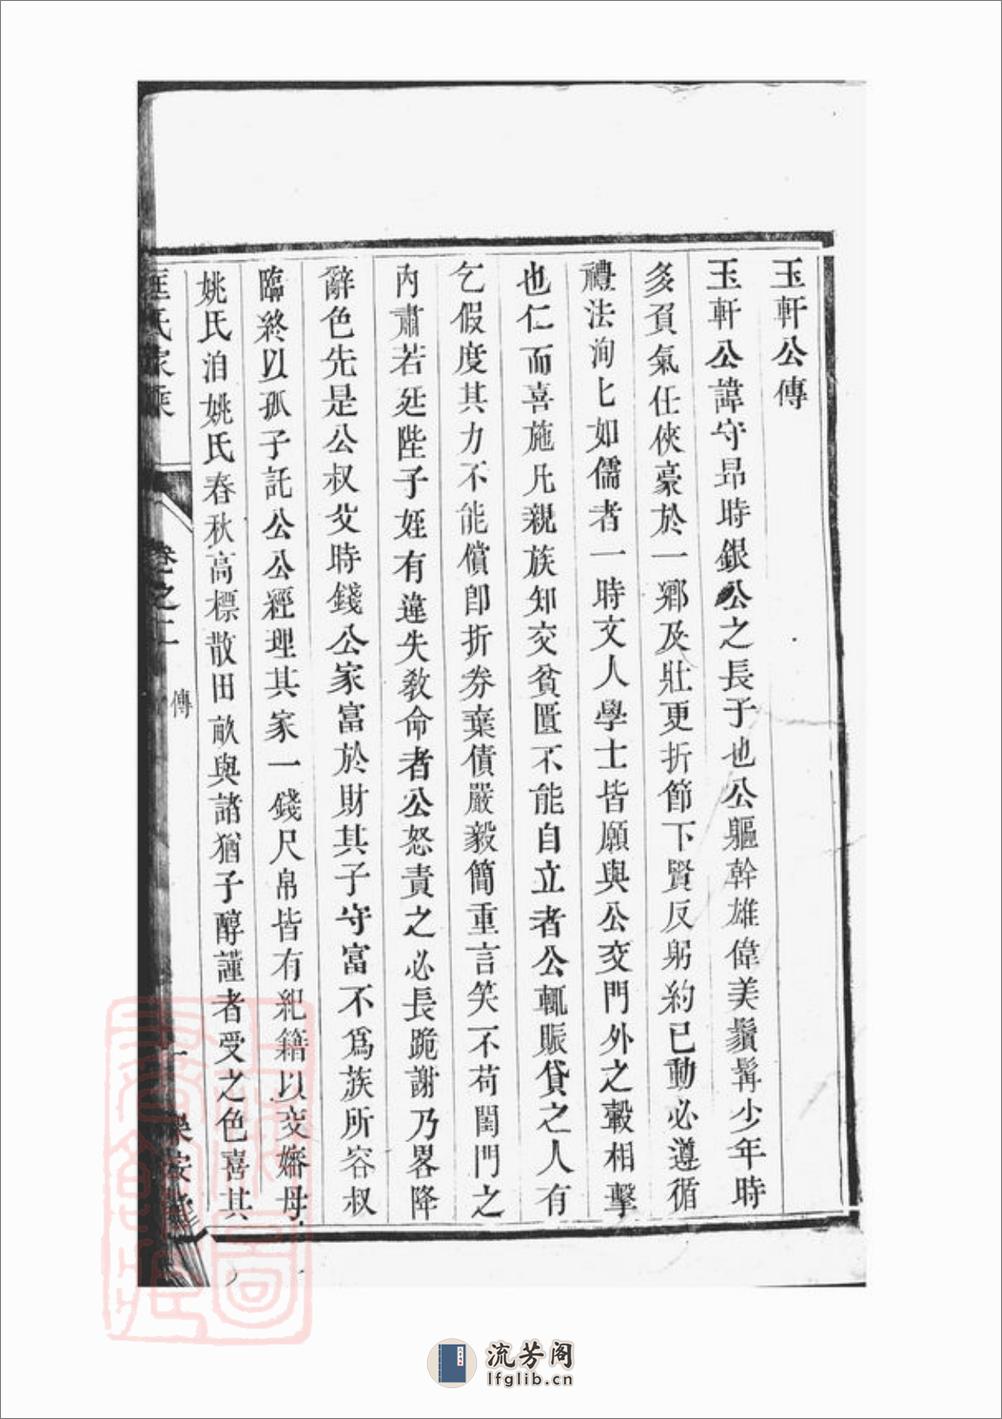 玉軒公傳
玉軒公諱守昂時銀公之長子也公軀幹雄偉美鬚髯少年時
多負氣任俠豪於一鄉及壯更折節下賢反躬約已動必遵循
禮法洵匕如儒者一時文人學士皆願與公交門外之轂相擊
也仁而喜施凡親族知交貧匱不能自立者公輒賑貸之人有
乞假度其力不能償卽折券棄債嚴毅簡重言笑不苟閨門之
內肅若廷陛子姪有違失敎命者公怒責之必長跪謝乃畧降
辭色先是公叔父時錢公家富於財其子守富不爲族所容叔
臨終以孤子託公公經理其家一錢尺帛皆有紀籍以交嬸母
姚氏洎姚氏春秋高標散田畝與諸猶子醇謹者受之色喜其
氏家乘
卷之二
傳
一
樂安堂
流芳阁
lfglib.cn